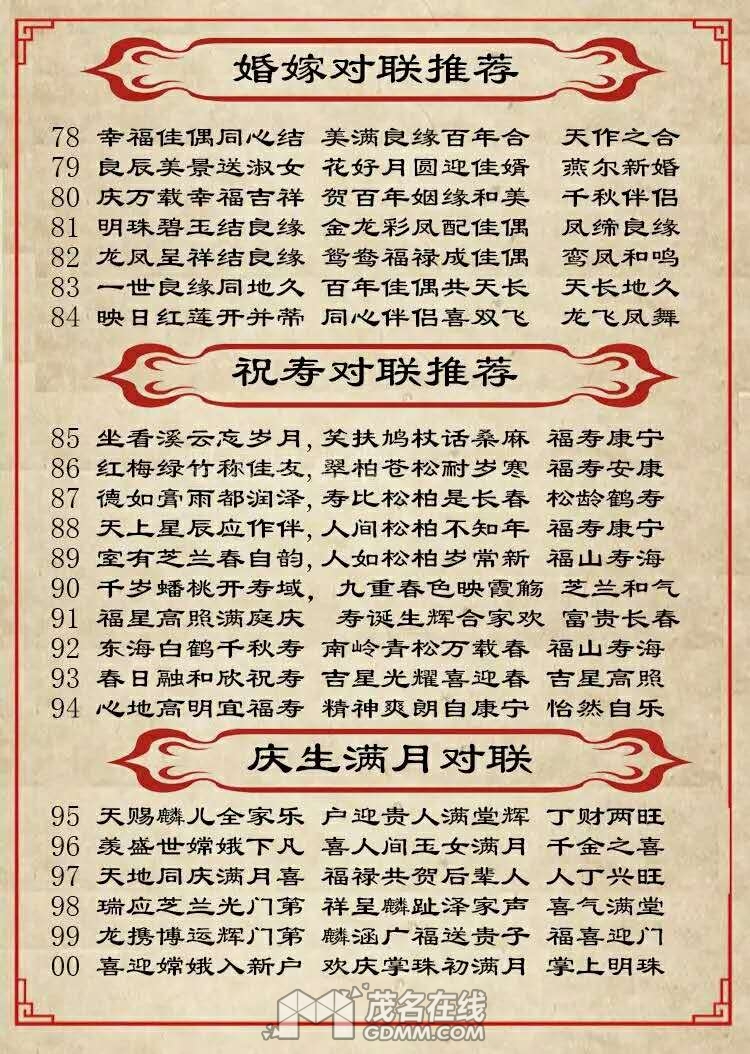 婚嫁对联推荐
78 幸福佳偶同心结 美满良缘百年合 天作之合
79 良辰美景送淑女 花好月圆迎佳婿 燕尔新婚
80 庆万载幸福吉祥 贺百年姻缘和美 千秋伴侣
81 明珠碧玉结良缘 金龙彩凤配佳偶 凤缔良缘
82 龙凤呈祥结良缘 鸳鸯福禄成佳偶 鸾凤和鸣
83 一世良缘同地久 百年佳偶共天长 天长地久
84 映日红莲开并蒂 同心伴侣喜双飞 龙飞凤舞
祝寿对联推荐
85 坐看溪云忘岁月,笑扶鸠杖话桑麻 福寿康宁
86 红梅绿竹称佳友,翠柏苍松耐岁寒 福寿安康
87 德如膏雨都润泽,寿比松柏是长春 松龄鹤寿
88 天上星辰应作伴,人间松柏不知年 福寿康宁
89 室有芝兰春自韵,人如松柏岁常新 福山寿海
90 千岁蟠桃开寿域，九重春色映霞觞 芝兰和气
91 福星高照满庭庆 寿诞生辉合家欢 富贵长春
92 东海白鹤千秋寿 南岭青松万载春 福山寿海
93 春日融和欣祝寿 吉星光耀喜迎春 吉星高照
94 心地高明宜福寿 精神爽朗自康宁 怡然自乐
庆生满月对联
95 天赐麟儿全家乐 户迎贵人满堂辉 丁财两旺
96 羡盛世嫦娥下凡 喜人间玉女满月 千金之喜
97 天地同庆满月喜 福禄共贺后辈人 人丁兴旺
98 瑞应芝兰光门第 祥呈麟趾泽家声 喜气满堂
99 龙携博运辉门第 麟涵广福送贵子 福喜迎门
00 喜迎嫦娥入新户 欢庆掌珠初满月 掌上明珠
茂名在线
GDMM.COM